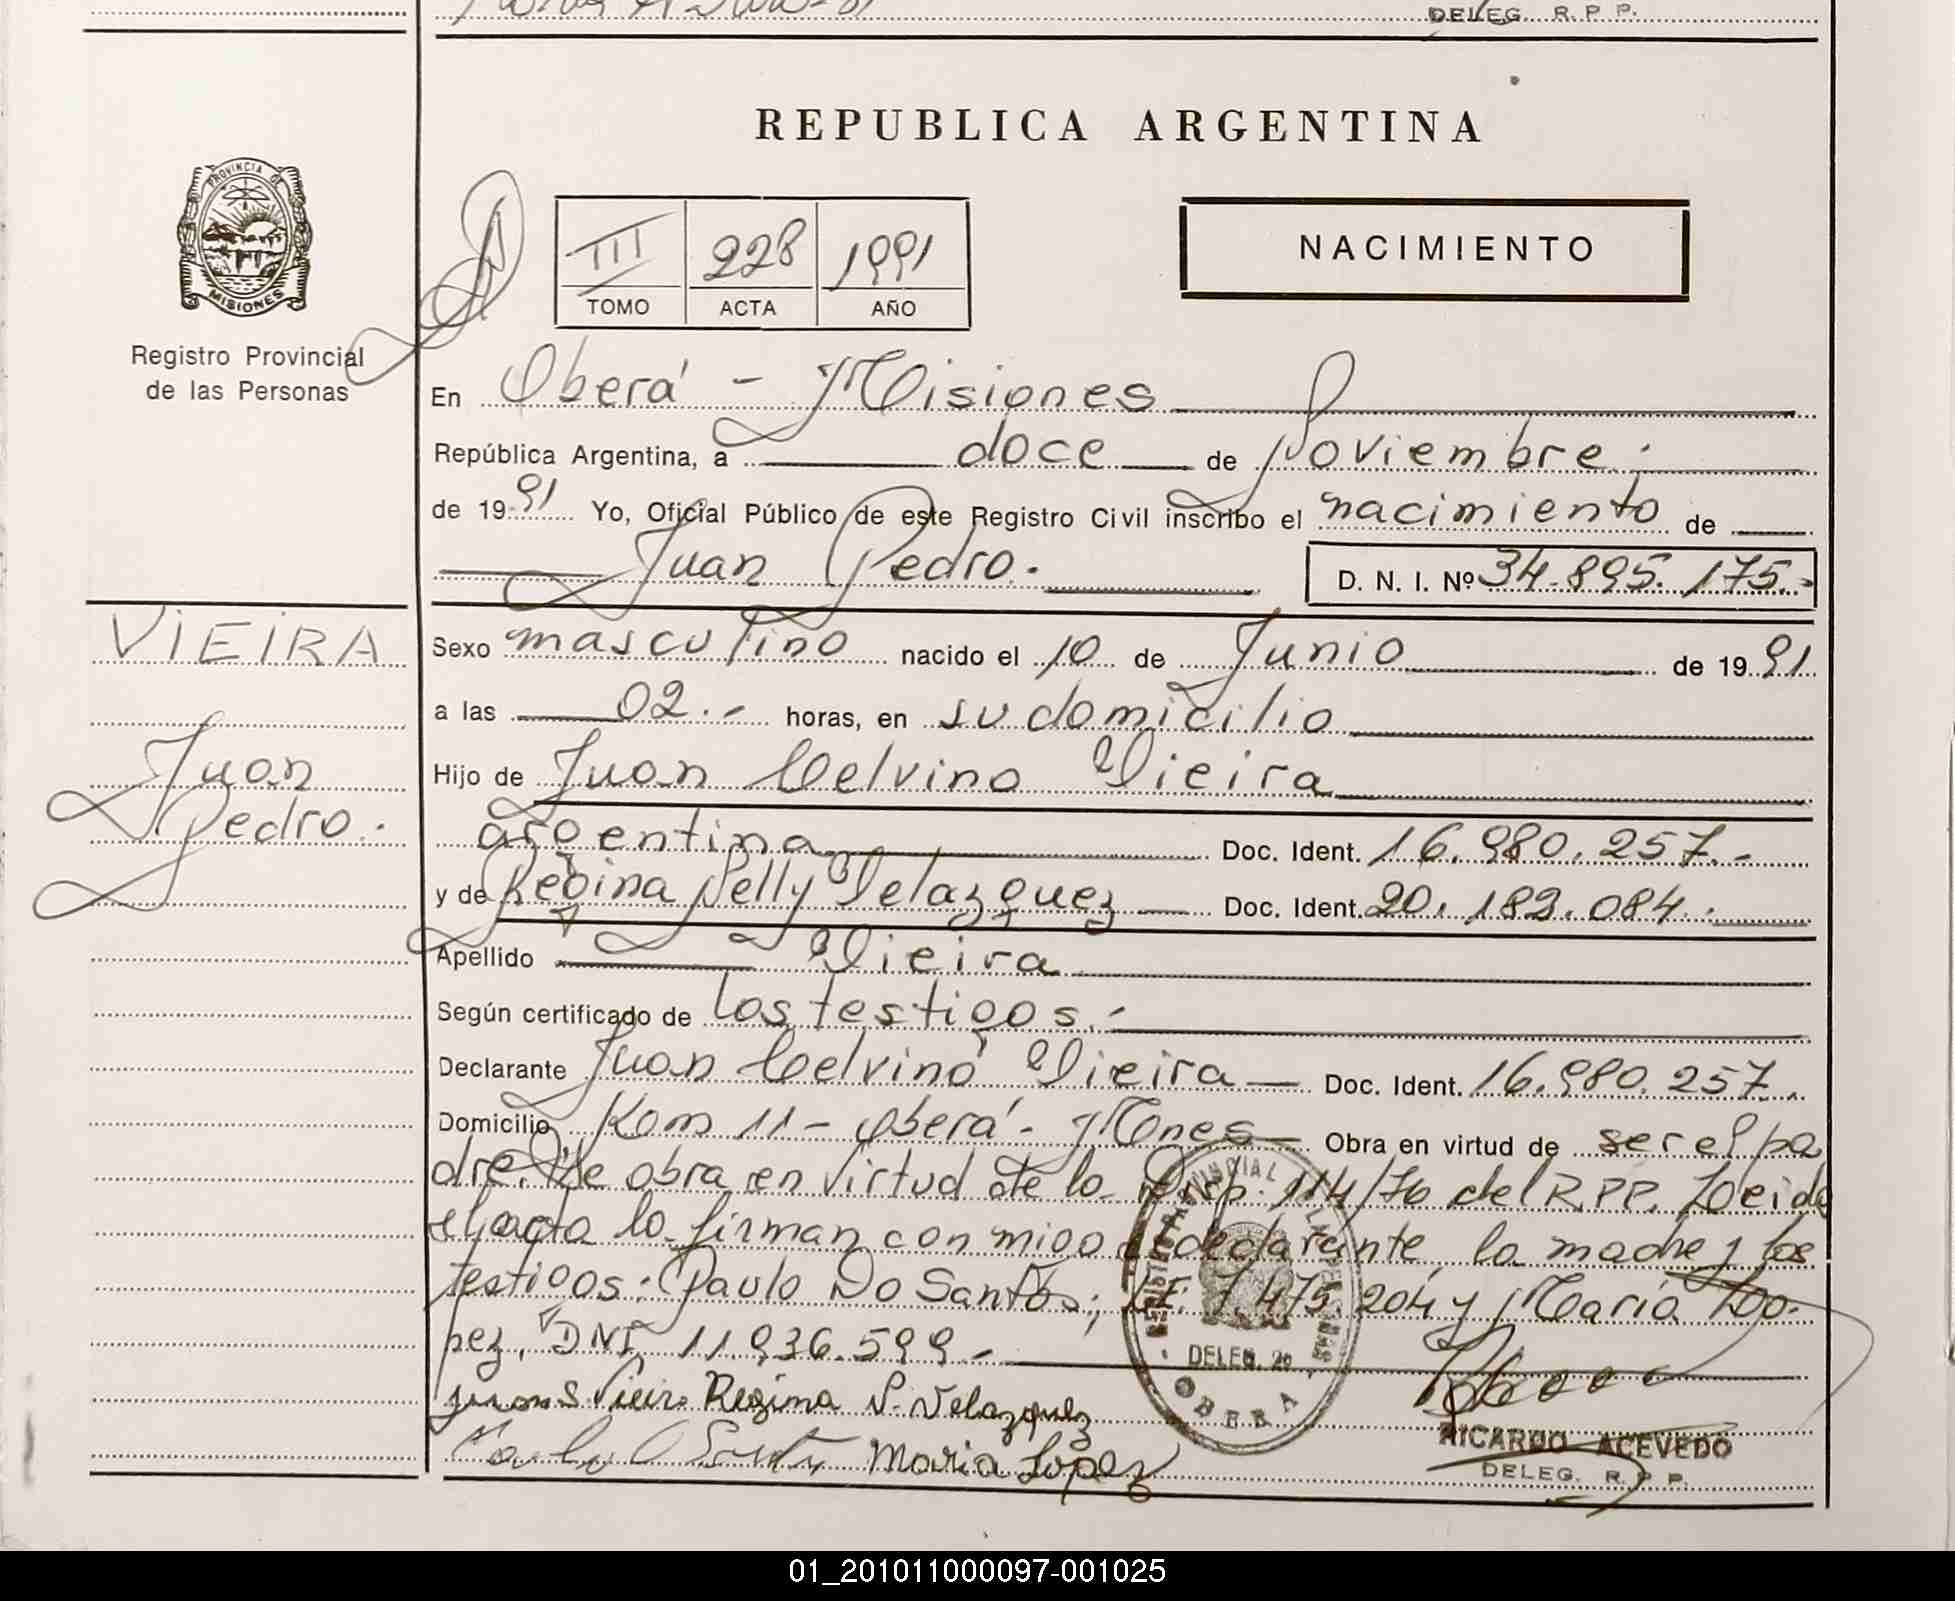 DELEG. R. P. P.
REPUBLICA ARGENTINA
PROVINCIA DE
MISIONES
Registro Provincial
de las Personas
III 228 1991
TOMO ACTA AÑO
NACIMIENTO
En Oberá - Misiones
República Argentina, a doce de Noviembre.
de 1991 Yo, Oficial Público de este Registro Civil inscribo el nacimiento de
Juan Pedro. D. N. I. Nº 34.895.175.-
VIEIRA
Juan
Pedro.
Sexo masculino nacido el 10 de Junio de 1991
a las 02.- horas, en su domicilio
Hijo de Juan Celvino Vieira
argentina Doc. Ident. 16.980.257.-
y de Regina Nelly Velazquez Doc. Ident. 20.182.084.
Apellido Vieira
Según certificado de los testigos.-
Declarante Juan Celvino Vieira Doc. Ident. 16.980.257.
Domicilio Km 11 - Oberá - Mnes Obra en virtud de ser el pa
dre. Se obra en virtud de la Disp. 114/76 del R.P.P. Leida
el acta la firman conmigo el declarante, la madre y los
testigos: Paulo Do Santos; LE. 7.475.204 y María Lo-
pez, DNI 11.936.599.-
Regina N. Velazquez
Maria Lopez
DELEG. 20
OBERA
RICARDO ACEVEDO
DELEG. R. P. P.
01_201011000097-001025